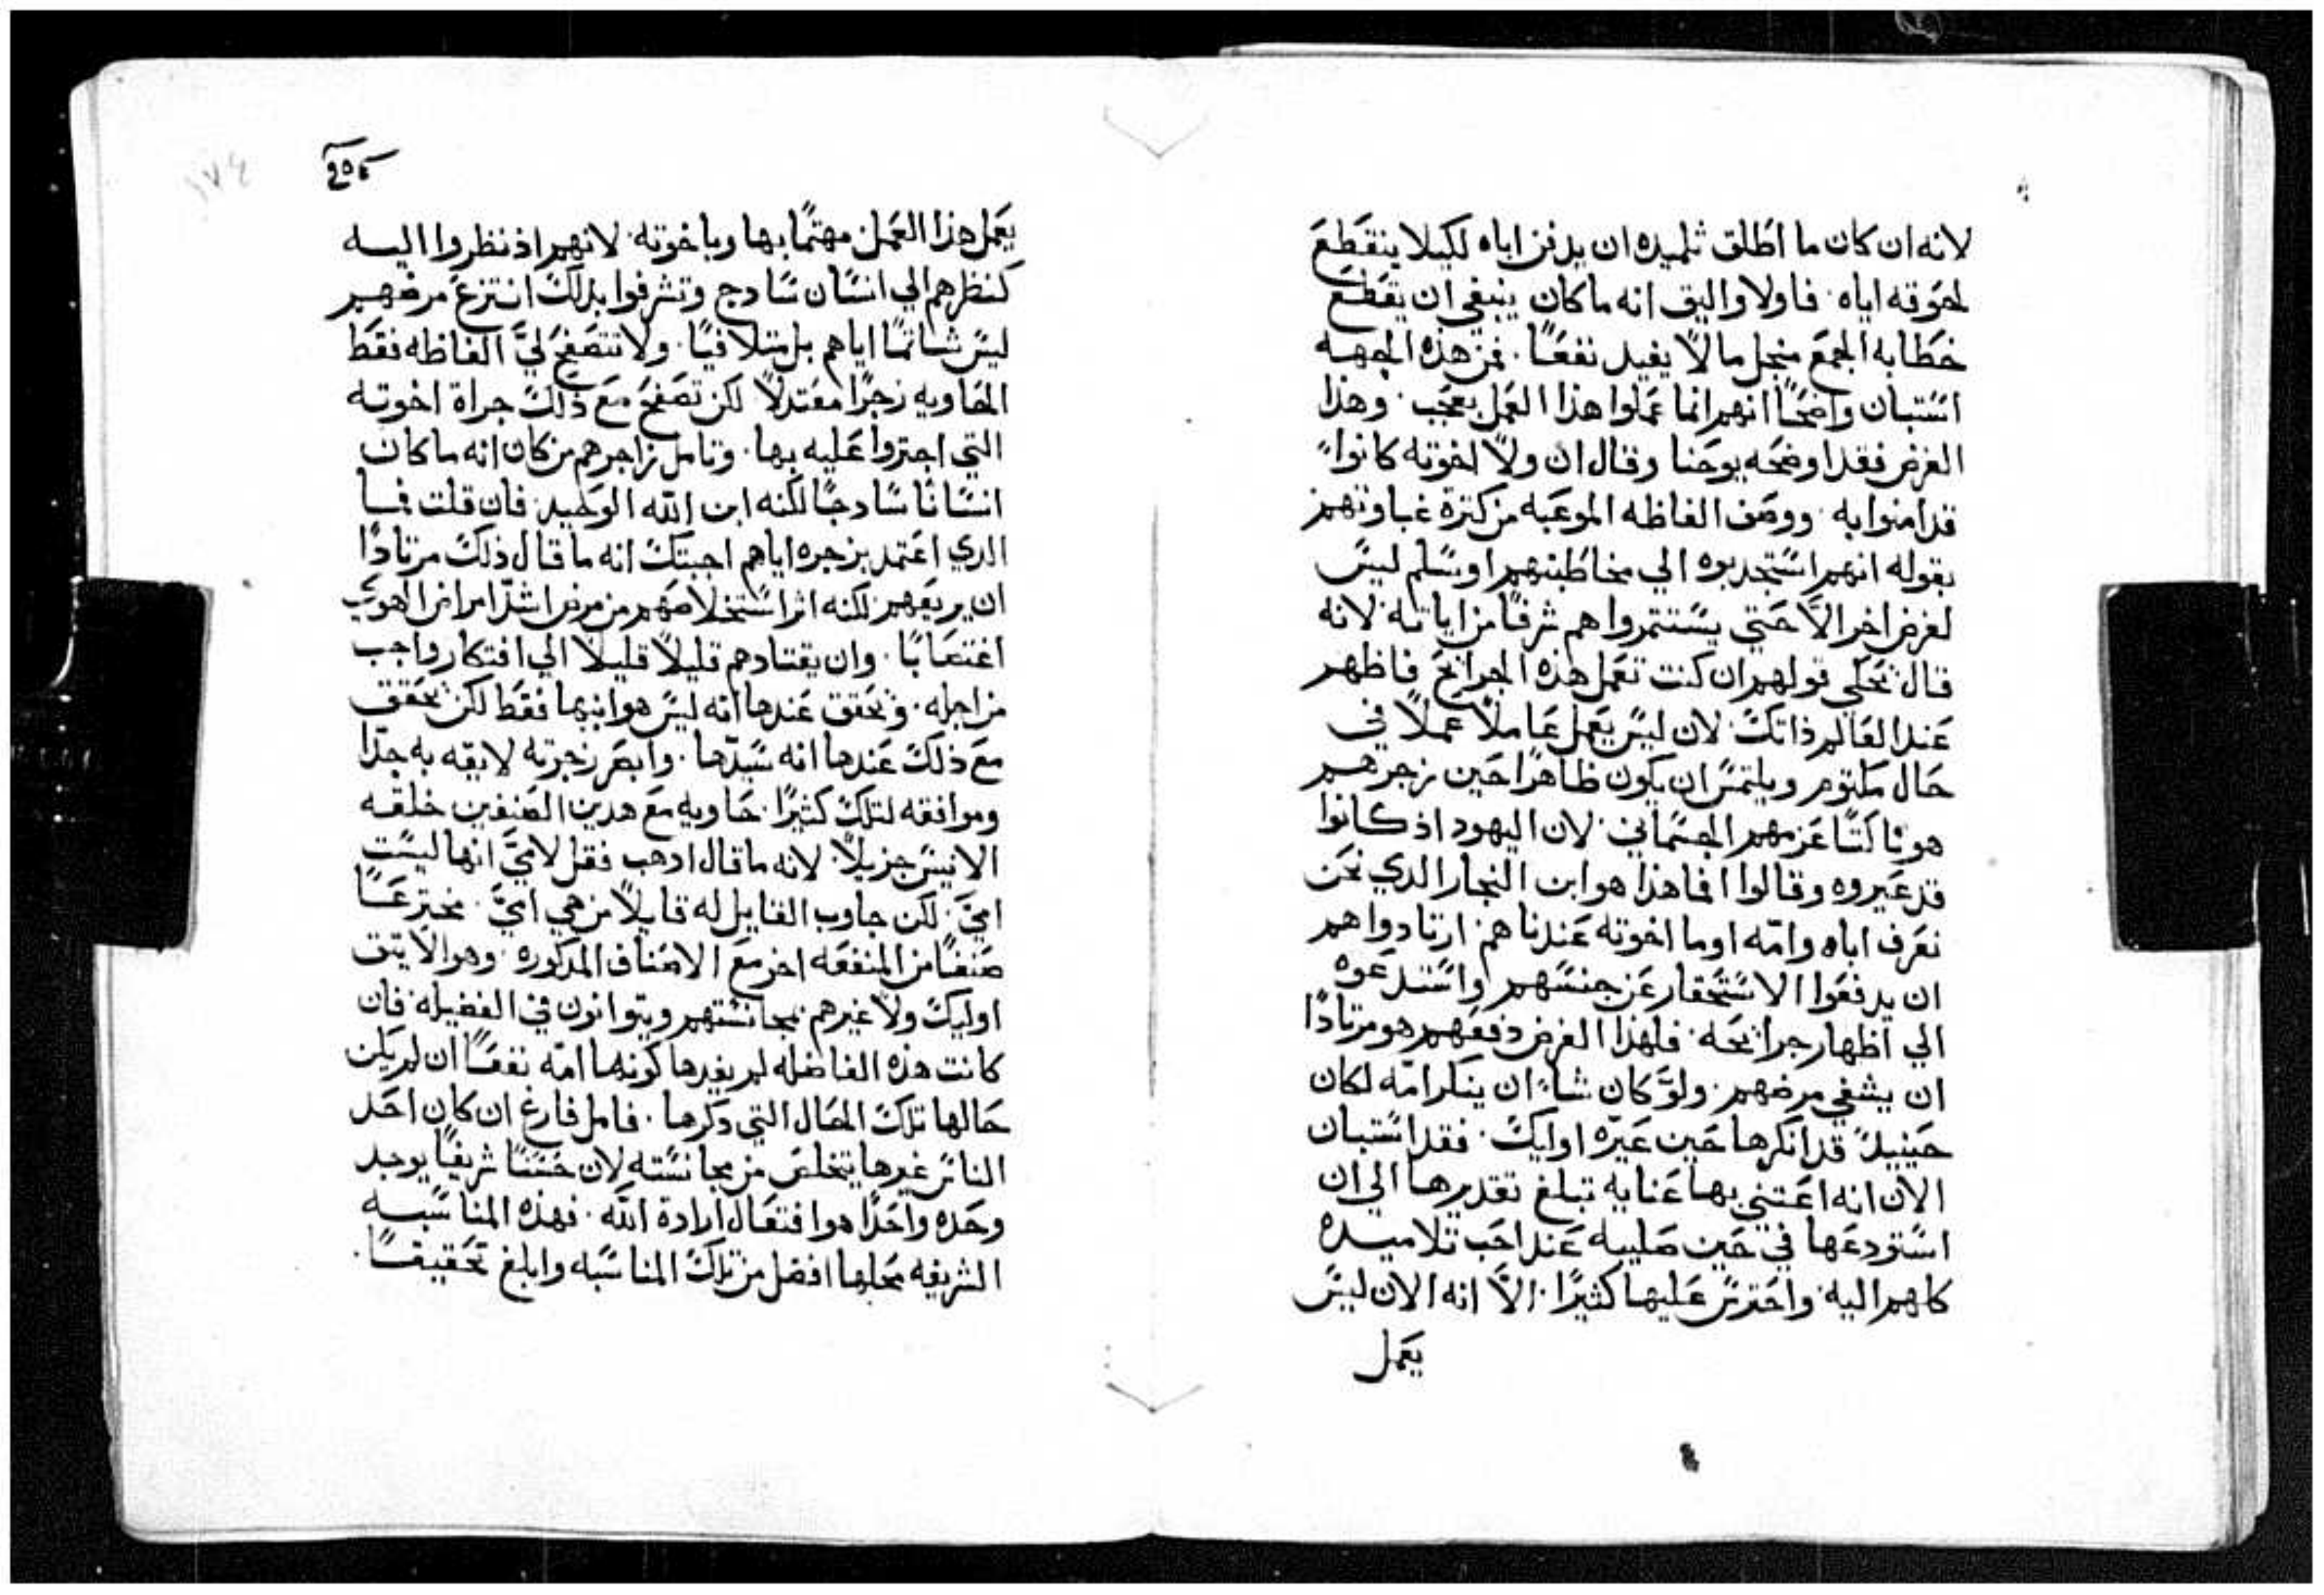 لانه ان كان ما اطلق تلميده ان يدفن اباه لكيلا ينقطع
لحوقه اياه. فاولا واليق انه ما كان ينبغي ان يقطع
خطابه الجمع منجل ما لا يفيد نفعًا. فمن هذه الجهه
استبان واضحًا انهم انما عملوا هذا العمل بعجب. وهذا
الغرض فقد اوضحه يوحنا وقال ان ولا اخوته كانوا
قد امنوا به. ووصف الفاظه الموعبه من كترة غباوتهم
بقوله انهم استجدبوه الي مخاطبتهم اوشلم ليس
لغرض اخر الاَّ حتي يستتمروا هم شرفًا من اياته. لانه
قال نحكي قولهم ان كنت تعمل هذه الجرايح فاظهر
عند العالم ذاتك. لان ليس يعمل عاملاً عملاً في
حال مكتوم ويلتمس ان يكون ظاهرًا حين زجرهم
هو ثاكتًا عزمهم الجسماني. لان اليهود اذ كانوا
قد عيروه وقالوا افما هذا هو ابن النجار الدي نحن
نعرف اباه وامّه اوما اخوته عندنا هم ارتادوا هم
ان يدفعوا الاستحقار عن جنسهم واستدعوه
الي اظهار جرايحه. فلهذا الغرض دفعهم هو مرتادًا
ان يشفي مرضهم. ولوَّ كان شاء ان ينكر امّه لكان
حينيدً قد انكرها حين عيّره اوليك. فقد استبان
الان انه اعتني بها عنايه تبلغ تقديرها الي ان
استودعها في حين صليبه عند احب تلاميده
كلهم اليه. واحترس عليها كثيرًا. الاَّ انه الان ليس
يعمل
يعمل هذا العمل مهتمًا بها وباخوته. لانهم اذ نظروا اليه
كنظرهم الي انسان سادج وتشرفوا بدلك انتزع مرضهم
ليس شاتمًا اياهم بل متلافيًا. ولا تتصفح ليَّ الفاظه فقط
الحاويه زجرًا معتدلاً لكن تصفح مع ذلك جراة اخوته
التي اجتروا عليه بها. وتامل زاجرهم من كان انه ما كان
انسانًا سادجًا لكنه ابن الله الوحيد. فان قلت فما
الدي اعتمد بزجره اياهم اجبتك انه ما قال ذلك مرتادًا
ان يريعهم لكنه اثر استخلاصهم من مرض اشدّ امراض الهوي
اغتصابًا. وان يقتادهم قليلاً قليلاً الي افتكار واجب
من اجله. وتحقق عندها انه ليس هو ابنها فقط لكن تحقق
مع ذلك عندها انه سيّدها. وابصر زجرته لايقه به جدّا
وموافقه لتلك كثيرًا. حاويه مع هدين الصنفين خلقه
الانيس جزيلاً. لانه ما قال ادهب فقل لاميَّ انها ليست
اميَّ. لكن جاوب القايل له قايلاً من هي اميَّ. مخترعًا
صنفًا من المنفعه اخر مع الاصناف المدكوره. وهو الا يثق
اوليك ولا غيرهم بمجانستهم ويتوانون في الفضيله. فان
كانت هذه الفاضله لم يفيدها كونها امّه نفعًا ان لم يكن
حالها تلك الحال التي دكرها. فامل فارغ ان كان احد
الناس غيرها يتخلص من مجانسته لان حسنًا شريفًا يوجد
وحده واحدًا هو افتعال ارادة الله. فهذه المناسبه
الشريفه محلها افضل من تلك المناسبه وابلغ تحقيقًا.